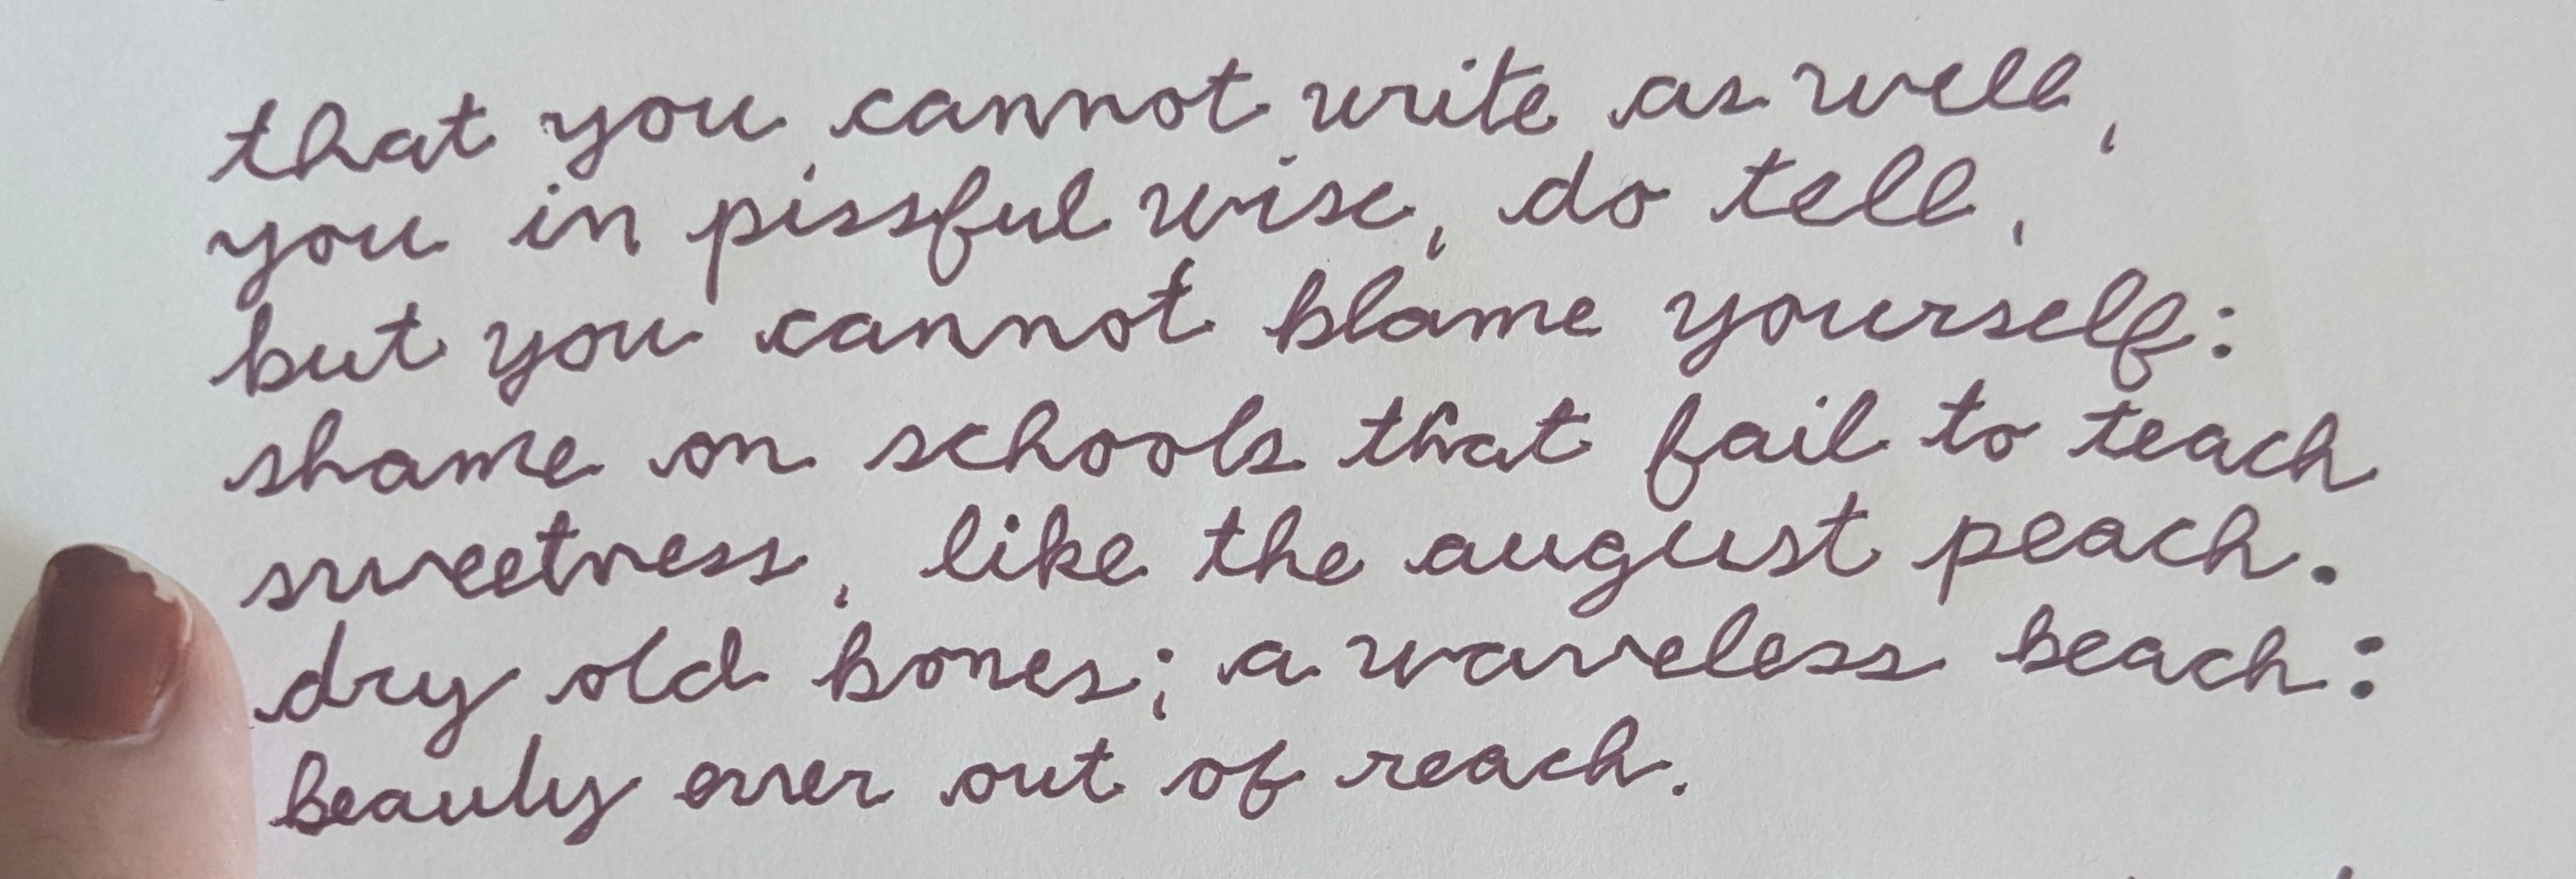 that you cannot write as well,
you in pissful wise, do tell,
but you cannot blame yourself:
shame on schools that fail to teach
sweetness, like the august peach.
dry old bones; a waveless beach:
beauty ever out of reach.